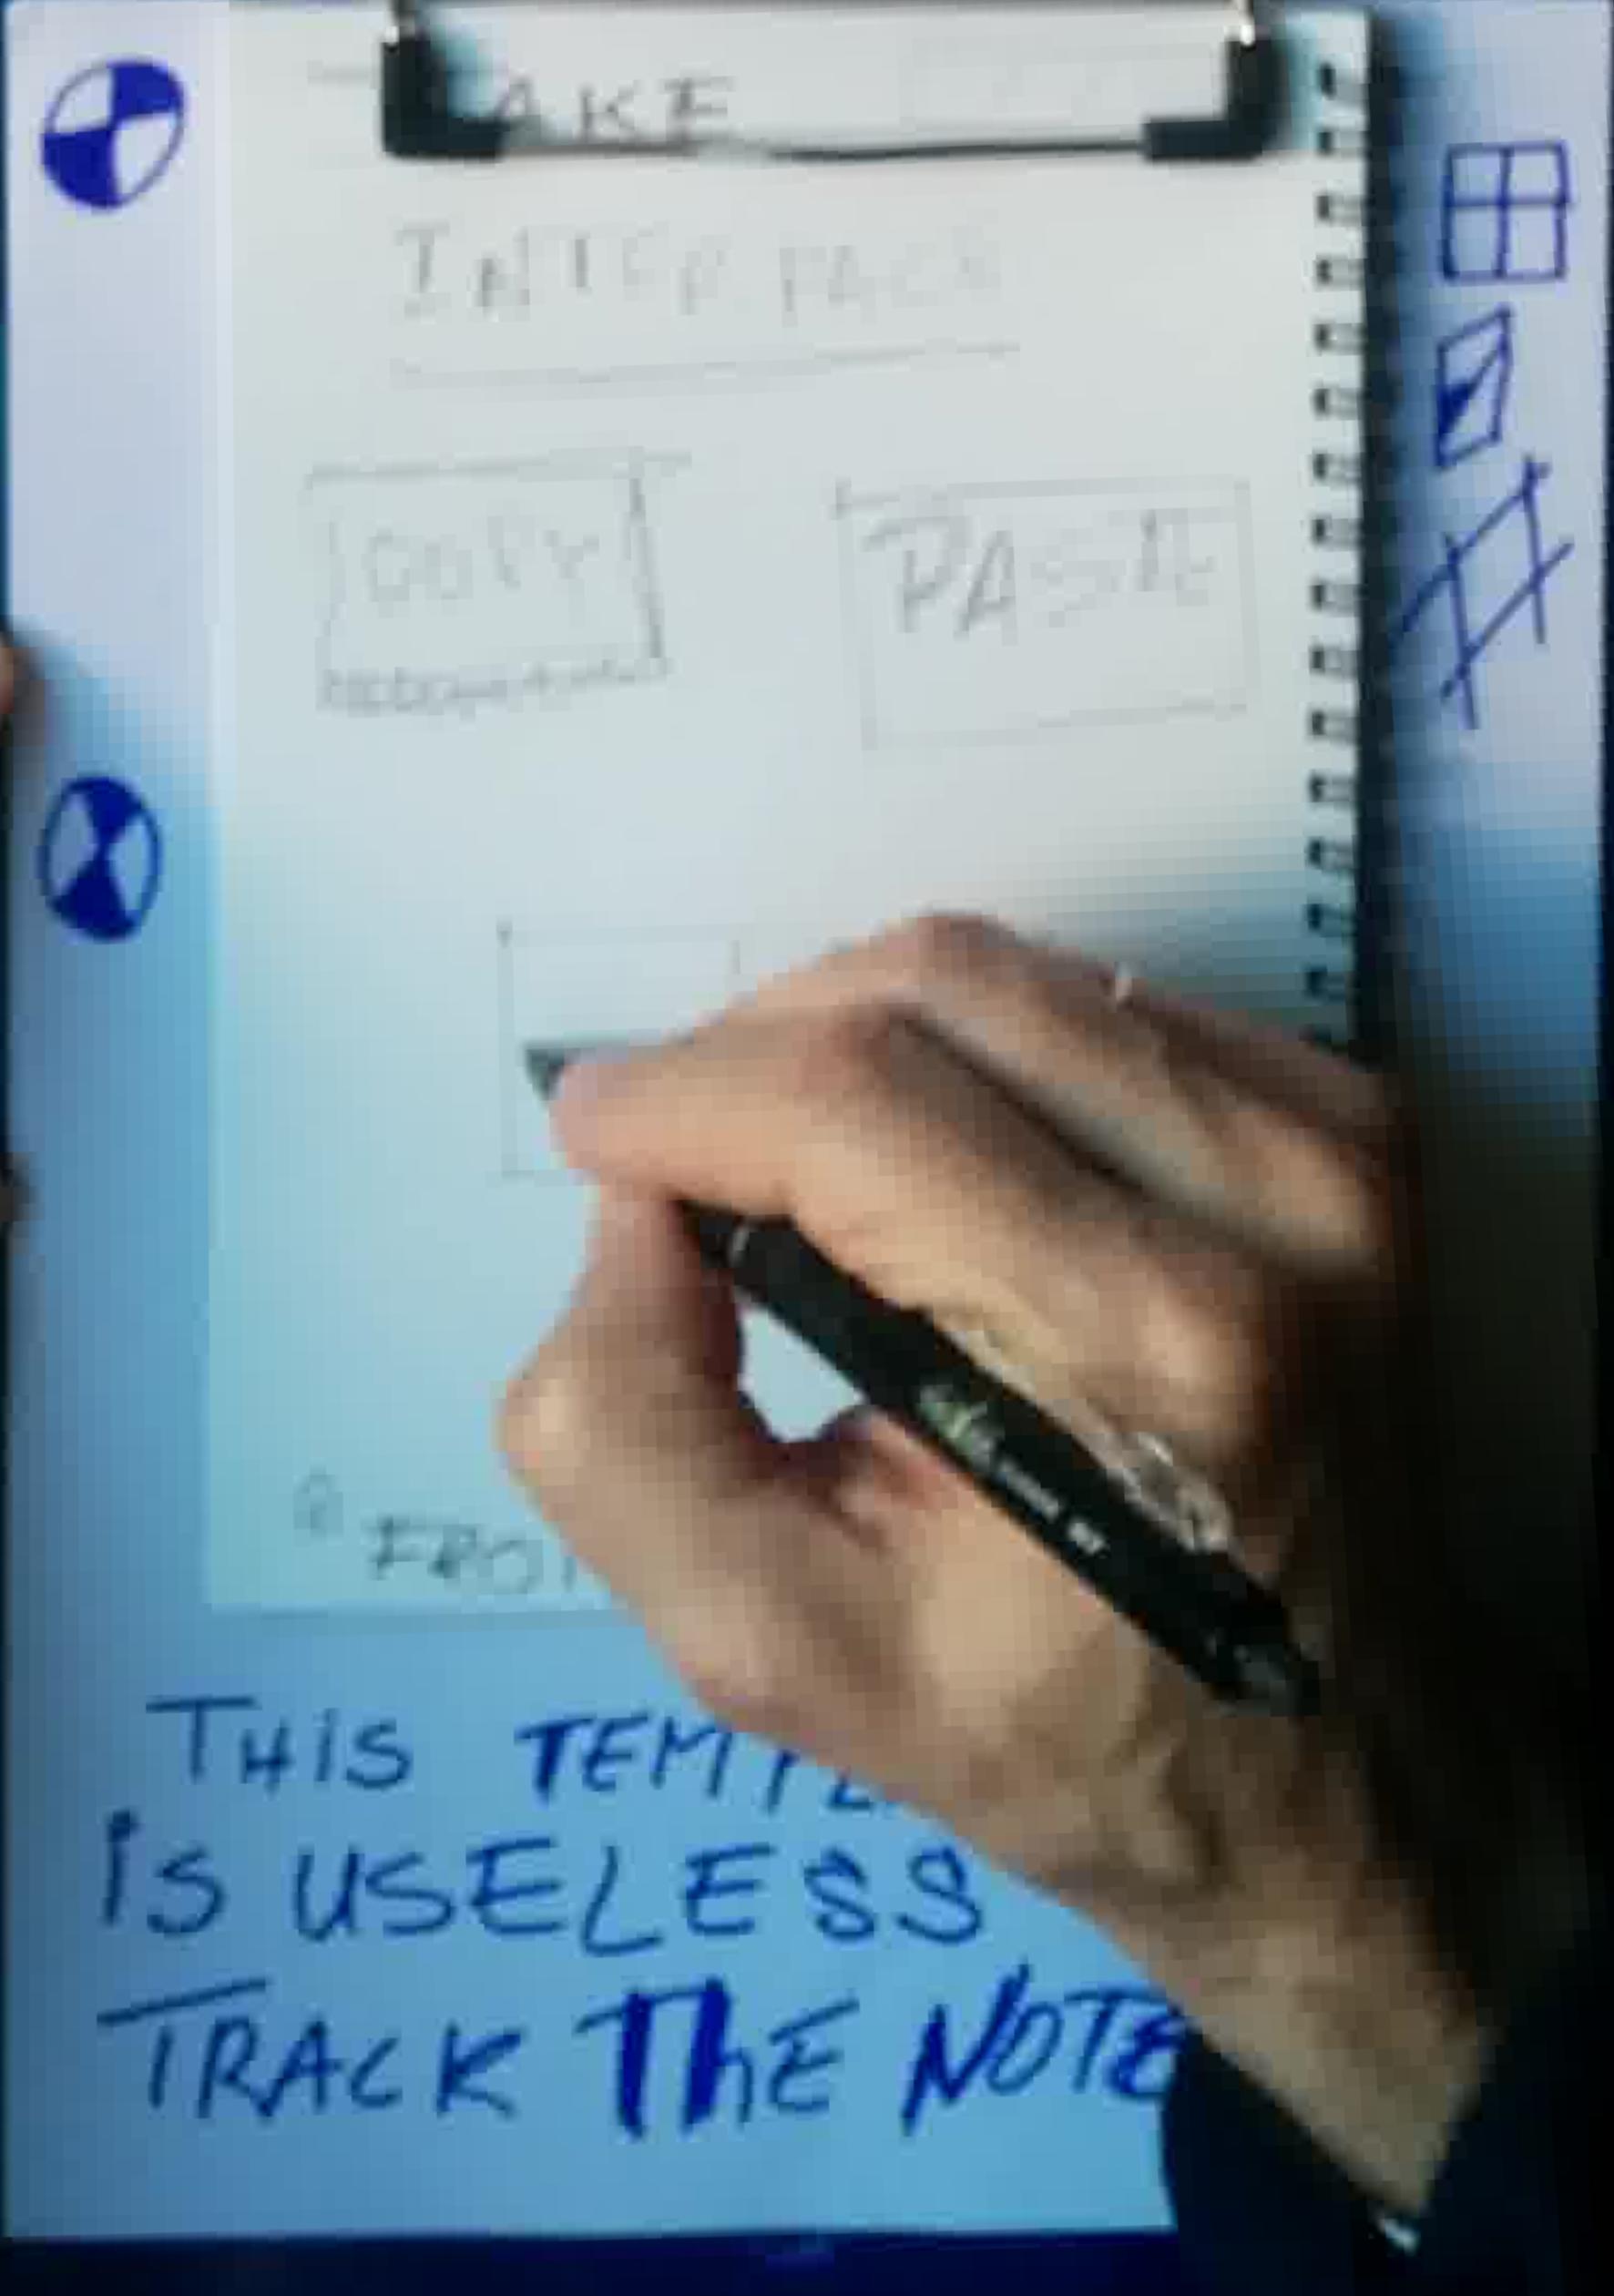 AKE
INTERFACE
COPY PASTE
FRO
THiS TEMPL
is USELESS
TRACK ThE NOTE